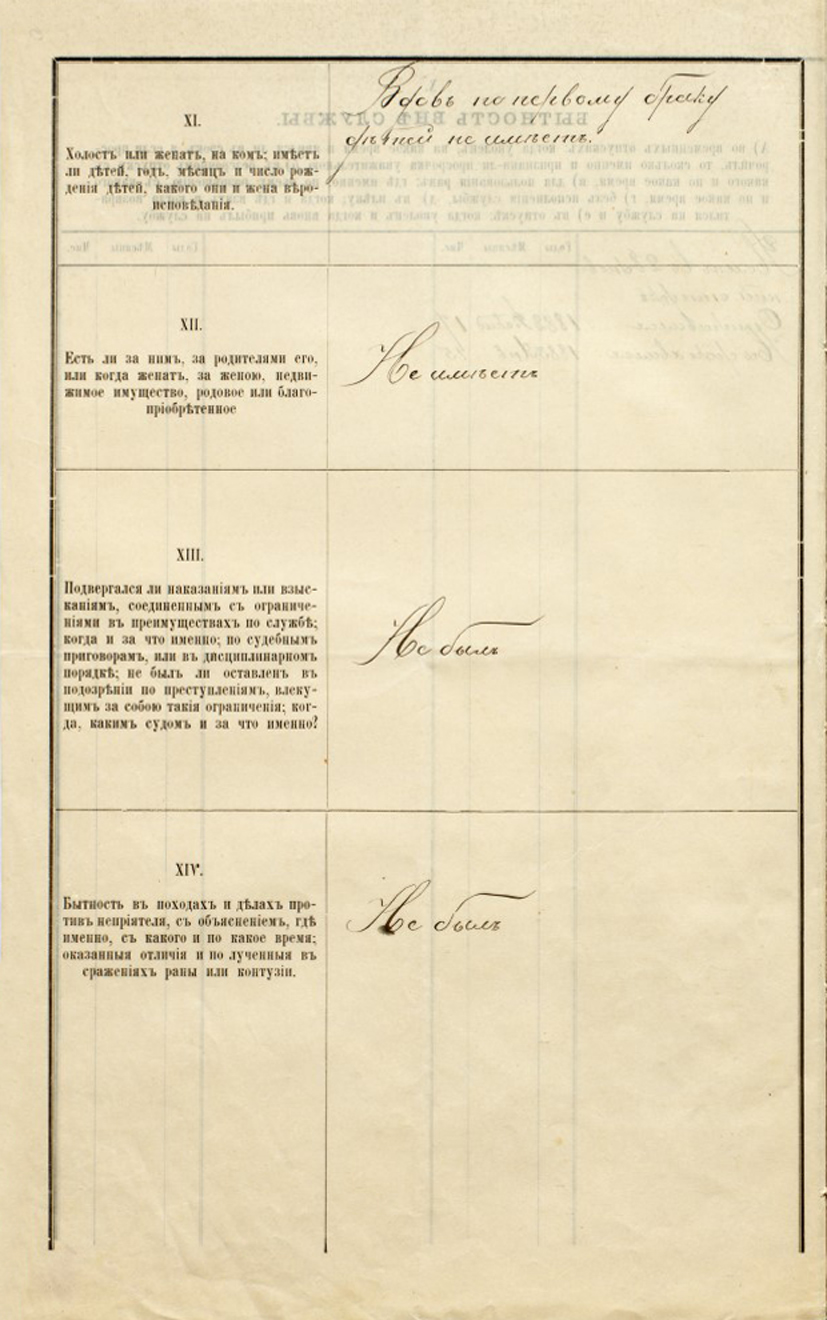 XI.
Холостъ или женатъ, на комъ; имѣетъ
ли дѣтей, годъ, мѣсяцъ и число рож-
денія дѣтей, какого они и жена вѣро-
исповѣданія.
Вдовъ по первому браку
дѣтей не имѣетъ.
XII.
Есть ли за нимъ, за родителями его,
или когда женатъ, за женою, недви-
жимое имущество, родовое или благо-
пріобрѣтенное
Не имѣетъ
XIII.
Подвергался ли наказаніямъ или взыс-
каніямъ, соединеннымъ съ ограниче-
ніями въ преимуществахъ по службѣ;
когда и за что именно; по судебнымъ
приговорамъ, или въ дисциплинарном
порядкѣ; не былъ ли оставленъ въ
подозрѣніи по преступленіямъ, влеку-
щимъ за собою такія ограниченія; ког-
да, какимъ судомъ и за что именно?
Не былъ
XIV.
Бытность въ походахъ и дѣлахъ про-
тивъ непріятеля, съ объясненіемъ, гдѣ
именно, съ какого и по какое время;
оказанныя отличія и по лученныя въ
сраженіяхъ раны или контузіи.
Не былъ